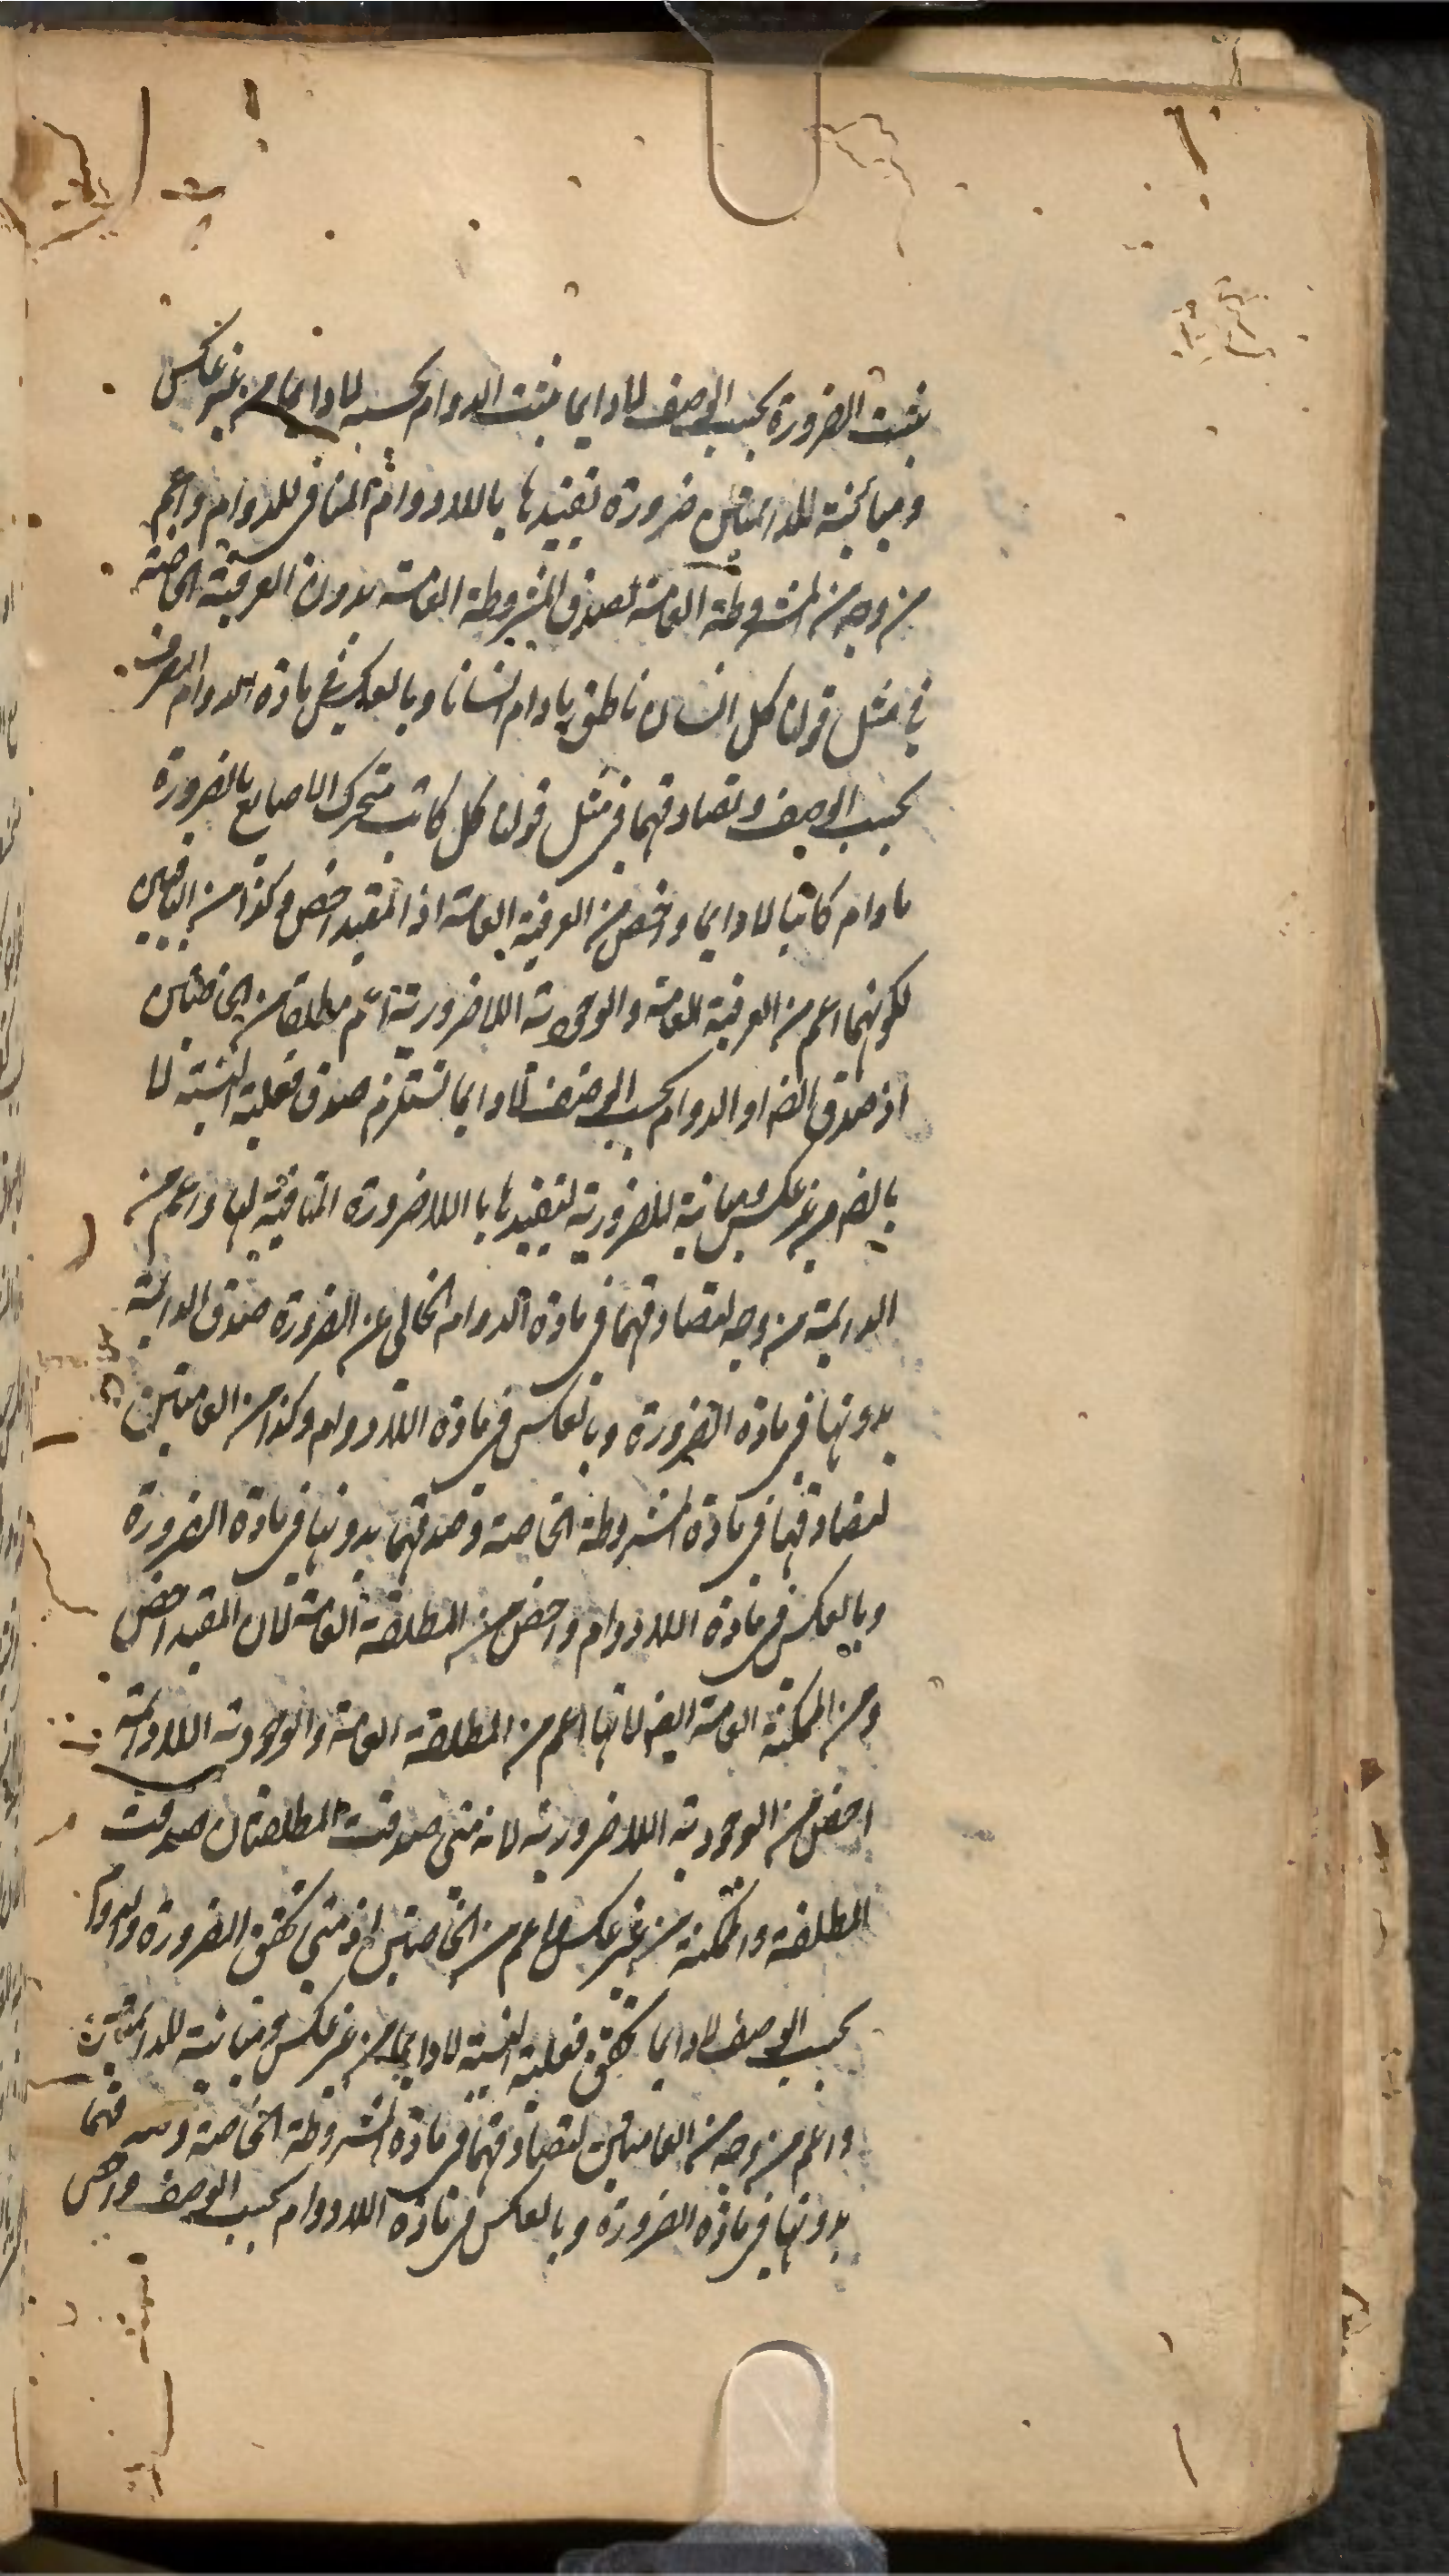 يثبت الضرورة بحسب الوصف لا دايما يثبت الدوام بحسبه لا دايما من غير عكس
ومباينة للدائمتين ضرورة تقييدها باللادوام المنافى للدوام واعم
من وجه من المشروطة العامة لصدق المشروطة العامة بدون العرفية الخاصة
فى مثل قولنا كل انسان ناطق مادام انسانا وبالعكس فى مادة الدوام الصرف
بحسب الوصف وتصادقهما فى مثل قولنا كل كاتب متحرك الاصابع بالضرورة
مادام كاتبا لا دايما واخص من العرفية العامة اذ المقيد اخص وكذا من الباقيين
لكونهما اعم من العرفية العامة والوجودية اللاضرورية اعم مطلقا من الخاصتين
اذ صدق الضر او الدوام بحسب الوصف لا دايما تستلزم صدق فعلية النسبة لا
بالضر من غير عكس ومباينة للضرورية لتقييدها باللاضرورة المنافية لها واعم من
الدائمة من وجه لتصادقهما فى مادة الدوام الخالى عن الضرورة وصدق الدائمة
بدونها فى مادة الضرورة وبالعكس فى مادة اللادوام وكذا من العامتين
لتصادقها فى مادة المشروطة الخاصة وصدقهما بدونها فى مادة الضرورة
وبالعكس فى مادة اللادوام واخص من المطلقة العامة لان المقيد اخص
ومن الممكنة العامة ايضا لانها اعم من المطلقة العامة والوجودية اللادائمة
اخص من الوجودية اللاضرورية لانه متى صدقت المطلقتان صدقت
المطلقة والممكنة من غير عكس واعم من الخاصتين اذ متى تحقق الضرورة والدوام
بحسب الوصف لا دايما تحقق فعلية النسبة لا دايما من غير عكس ومباينة للدائمتين
واعم من وجه من العامتين لتصادقهما فى مادة المشروطة الخاصة وصدقهما
بدونها فى مادة الضرورة وبالعكس فى مادة اللادوام بحسب الوصف واخص